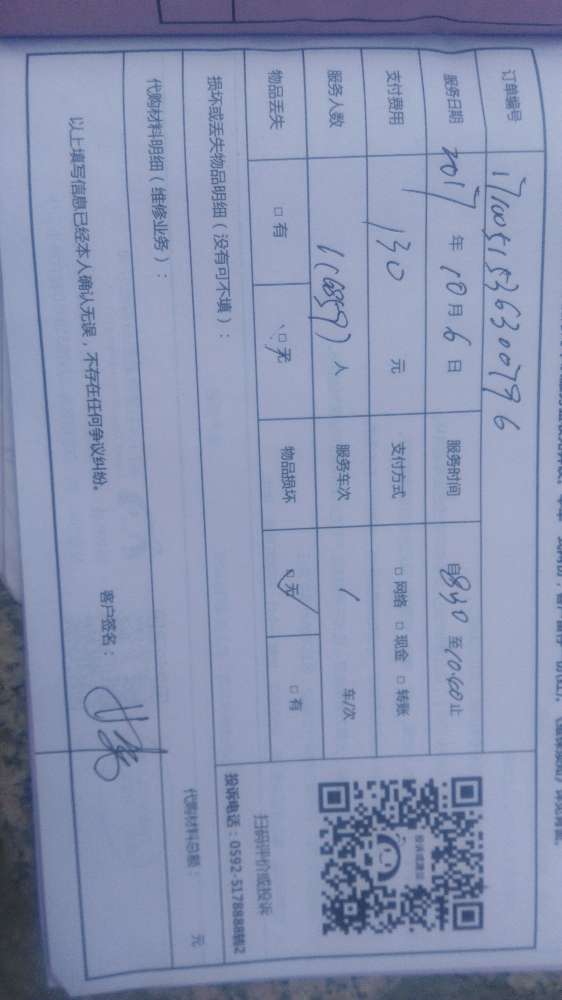 订单编号 171005153630796
服务日期 2017 年 10 月 6 日 服务时间 自 830 至 10:00 止
支付费用 130 元 支付方式 □ 网络 □ 现金 □ 转账
服务人数 1 人 服务车次 1 车/次
物品丢失 □ 有 □ 无 物品损坏 □ 无 □ 有
损坏或丢失物品明细（没有可不填）：
代购材料明细（维修业务）：
代购材料总额： 元
以上填写信息已经本人确认无误，不存在任何争议纠纷。
客户签名：
扫码评价或投诉
投诉电话：0592-5178888转2